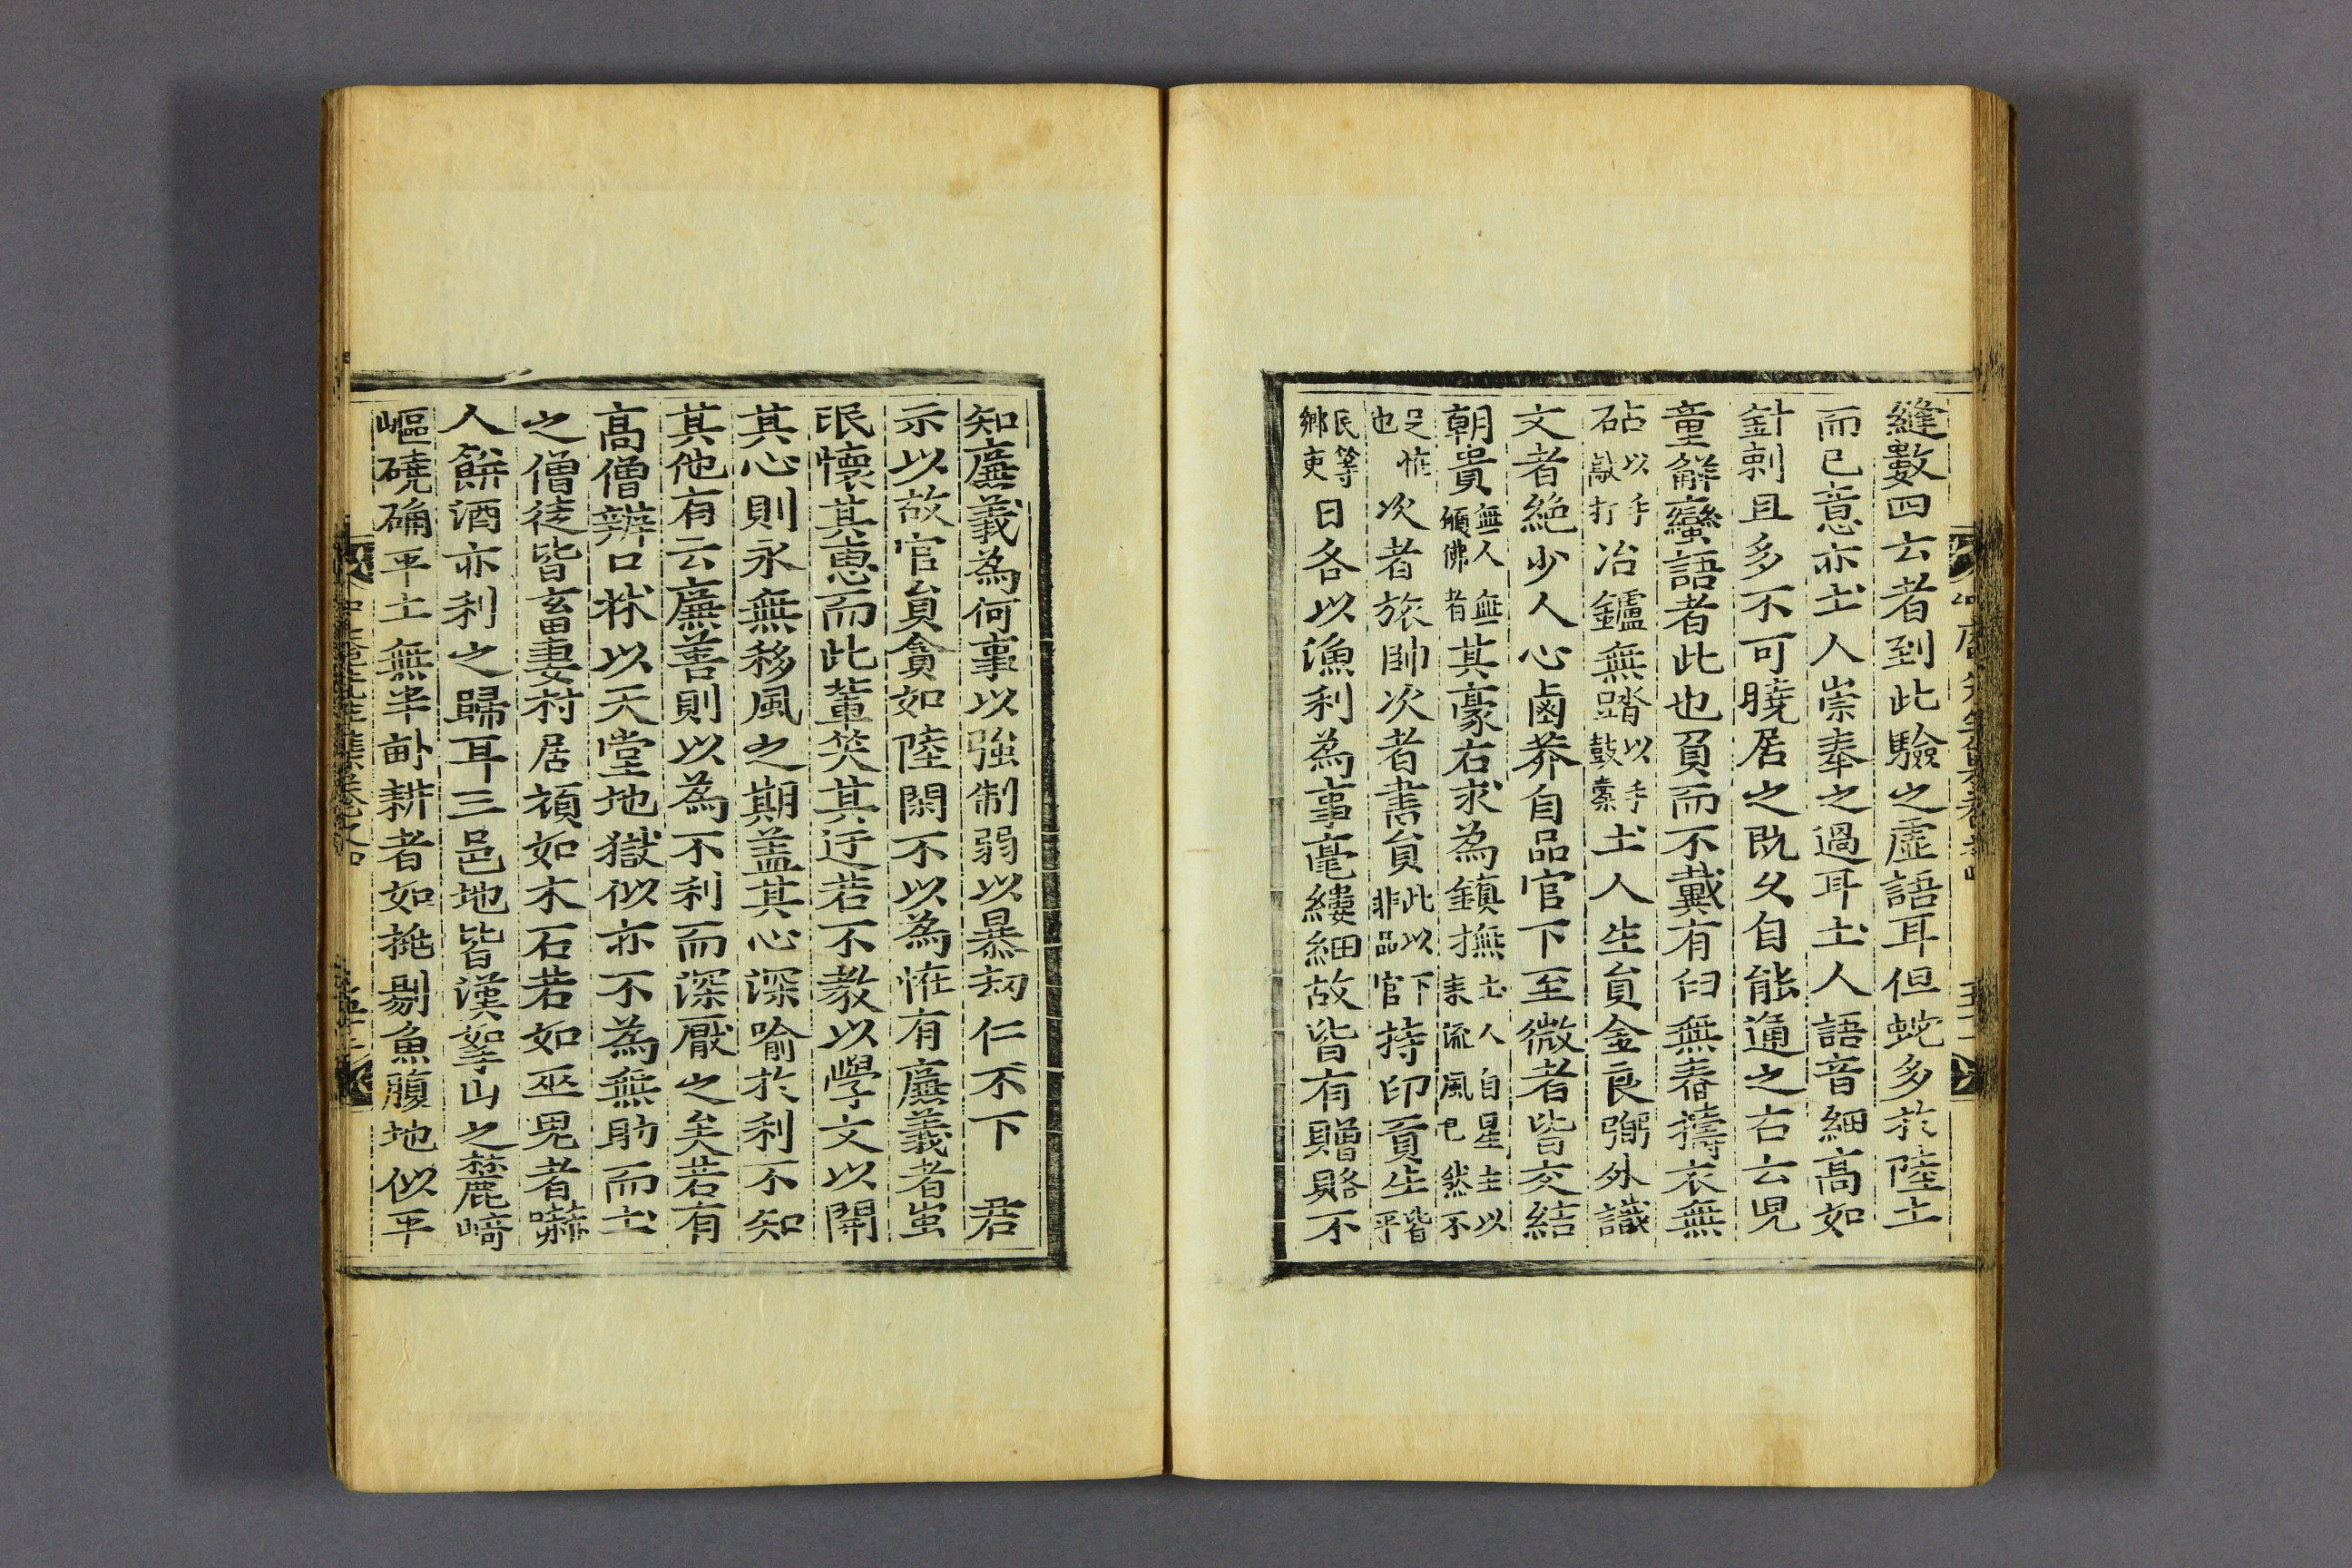 縫數四云者到此驗之虛語耳但蛇多於陸土
而已意亦土人崇奉之過耳土人語音細高如
針刺且多不可曉居之旣久自能通之右云児
童解蠻語者此也負而不戴有臼無舂擣衣無
砧以手敲打冶鑪無踏以手鼓橐土人生貟金良弼外識
文者絶少人心鹵莽自品官下至微者皆交結
朝貴無人無顧佛者其豪右求爲鎮撫土人自星主以來流風已然不
足恠也次者旅帥次者書貟此以下非品官持印貢生皆平
民等鄕吏日各以漁利為事毫縷細故皆有贈賂不
知廉義為何事以強制弱以暴刼仁不下 君
示以故官貟貪如陸閑不以為恠有廉義者蚩
氓懷其恵而此輩笑其迂若不敎以學文以開
其心則永無移風之期盖其心深喻於利不知
其他有云廉善則以為不利而深厭之矣若有
高僧辨口怵以天堂地獄似亦不為無助而土
之僧徒皆畜妻村居頑如木石若如巫鬼者嚇
人餠酒亦利之歸耳三邑地皆漢拏山之麓崎
嶇磽确平土無半畝耕者如挑剔魚腹地似平